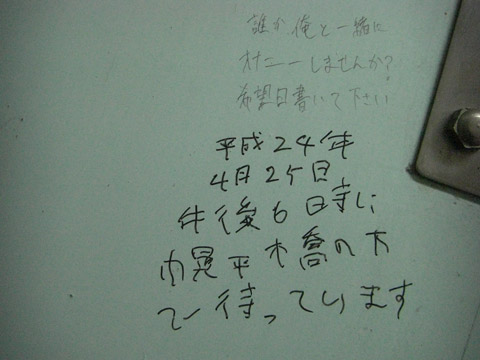 誰か俺と一緒に
オナニーしませんか?
希望日書いて下さい
平成24年
4月25日
午後6時に
内晃平木橋の下
で待っています